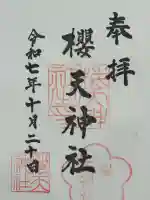 奉拝
櫻天神社
令和七年十月二十日